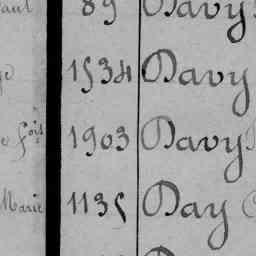 aul 89 Davy
1534 Davy
e fois 1903 Davy
Marie 1135 Day